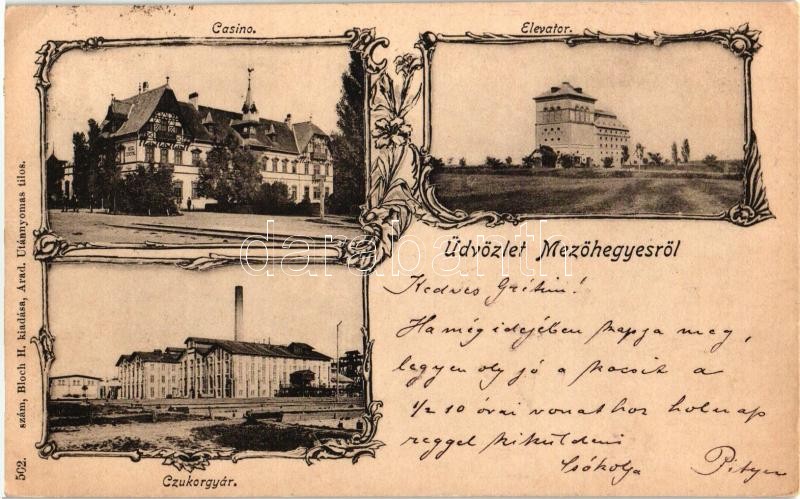 Casino.
Elevator.
Üdvözlet Mezőhegyesről
Kedves
Ha még idejében kapja meg,
legyen oly jó a kocsit a
1/2 10 órai vonathoz holnap
reggel kiküldeni
Csókolja
Czukorgyár.
502. szám, Bloch H. kiadása, Arad. Utánnyomas tilos.
darabanth